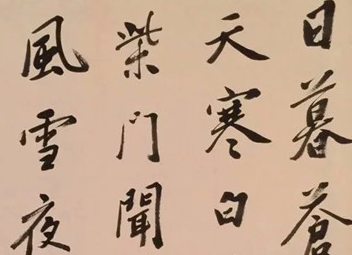 日暮蒼
天寒白
柴門聞
風雪夜